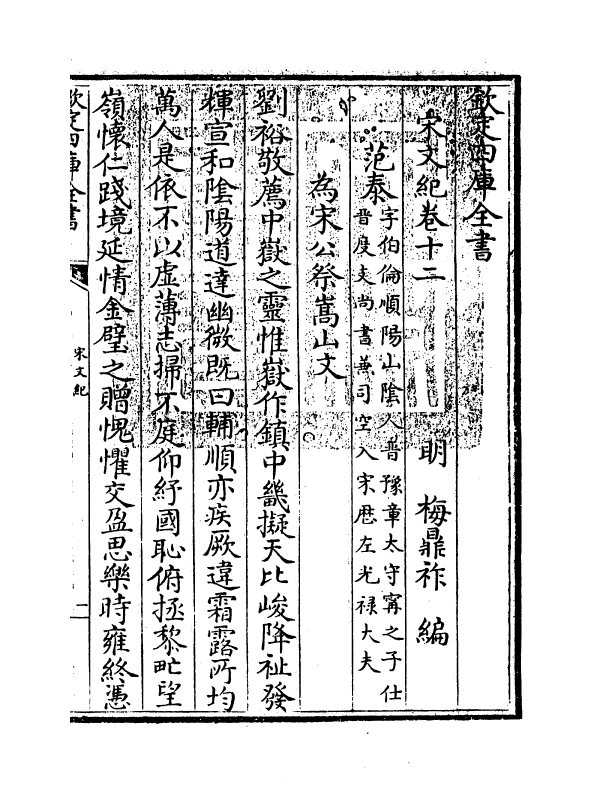 欽定四庫全書
宋文紀卷十二
明 梅鼎祚 編
范泰
字伯倫順陽山陰人晉豫章太守甯之子仕
晉度支尚書兼司空入宋歴左光禄大夫
為宋公祭嵩山文
劉裕敬薦中嶽之靈惟嶽作鎮中畿擬天比峻降祉發
輝宣和陰陽道達幽微既曰輔順亦疾厥違霜露所均
萬人是依不以虚薄志掃不庭仰紓國恥俯拯黎甿望
嶺懷仁踐境延情金璧之贈愧懼交盈思樂時雍終憑
欽定四庫全書
宋文紀
一